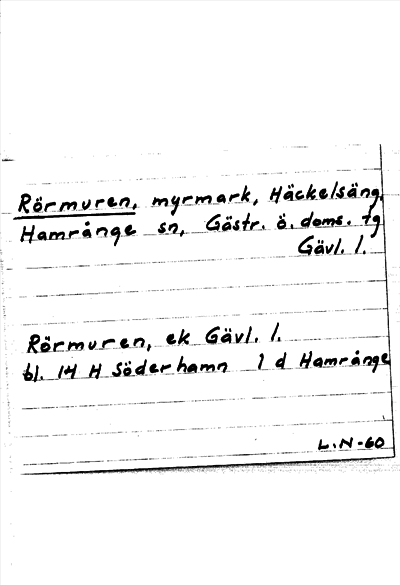 Rörmuren, myrmark, Häckelsäng,
Hamrånge sn, Gästr. ö. doms. tg
Gävl. l.
Rörmuren, ek Gävl. l.
bl. 14 H Söderhamn 1 d Hamrånge
L.N-60